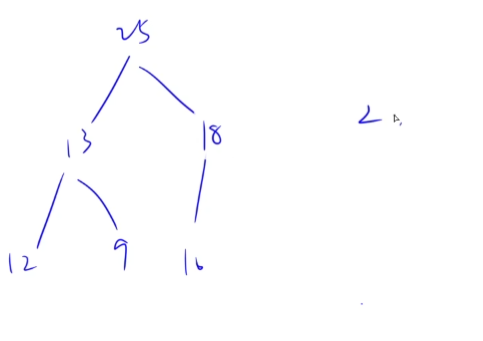 25
13 18
12 9 16